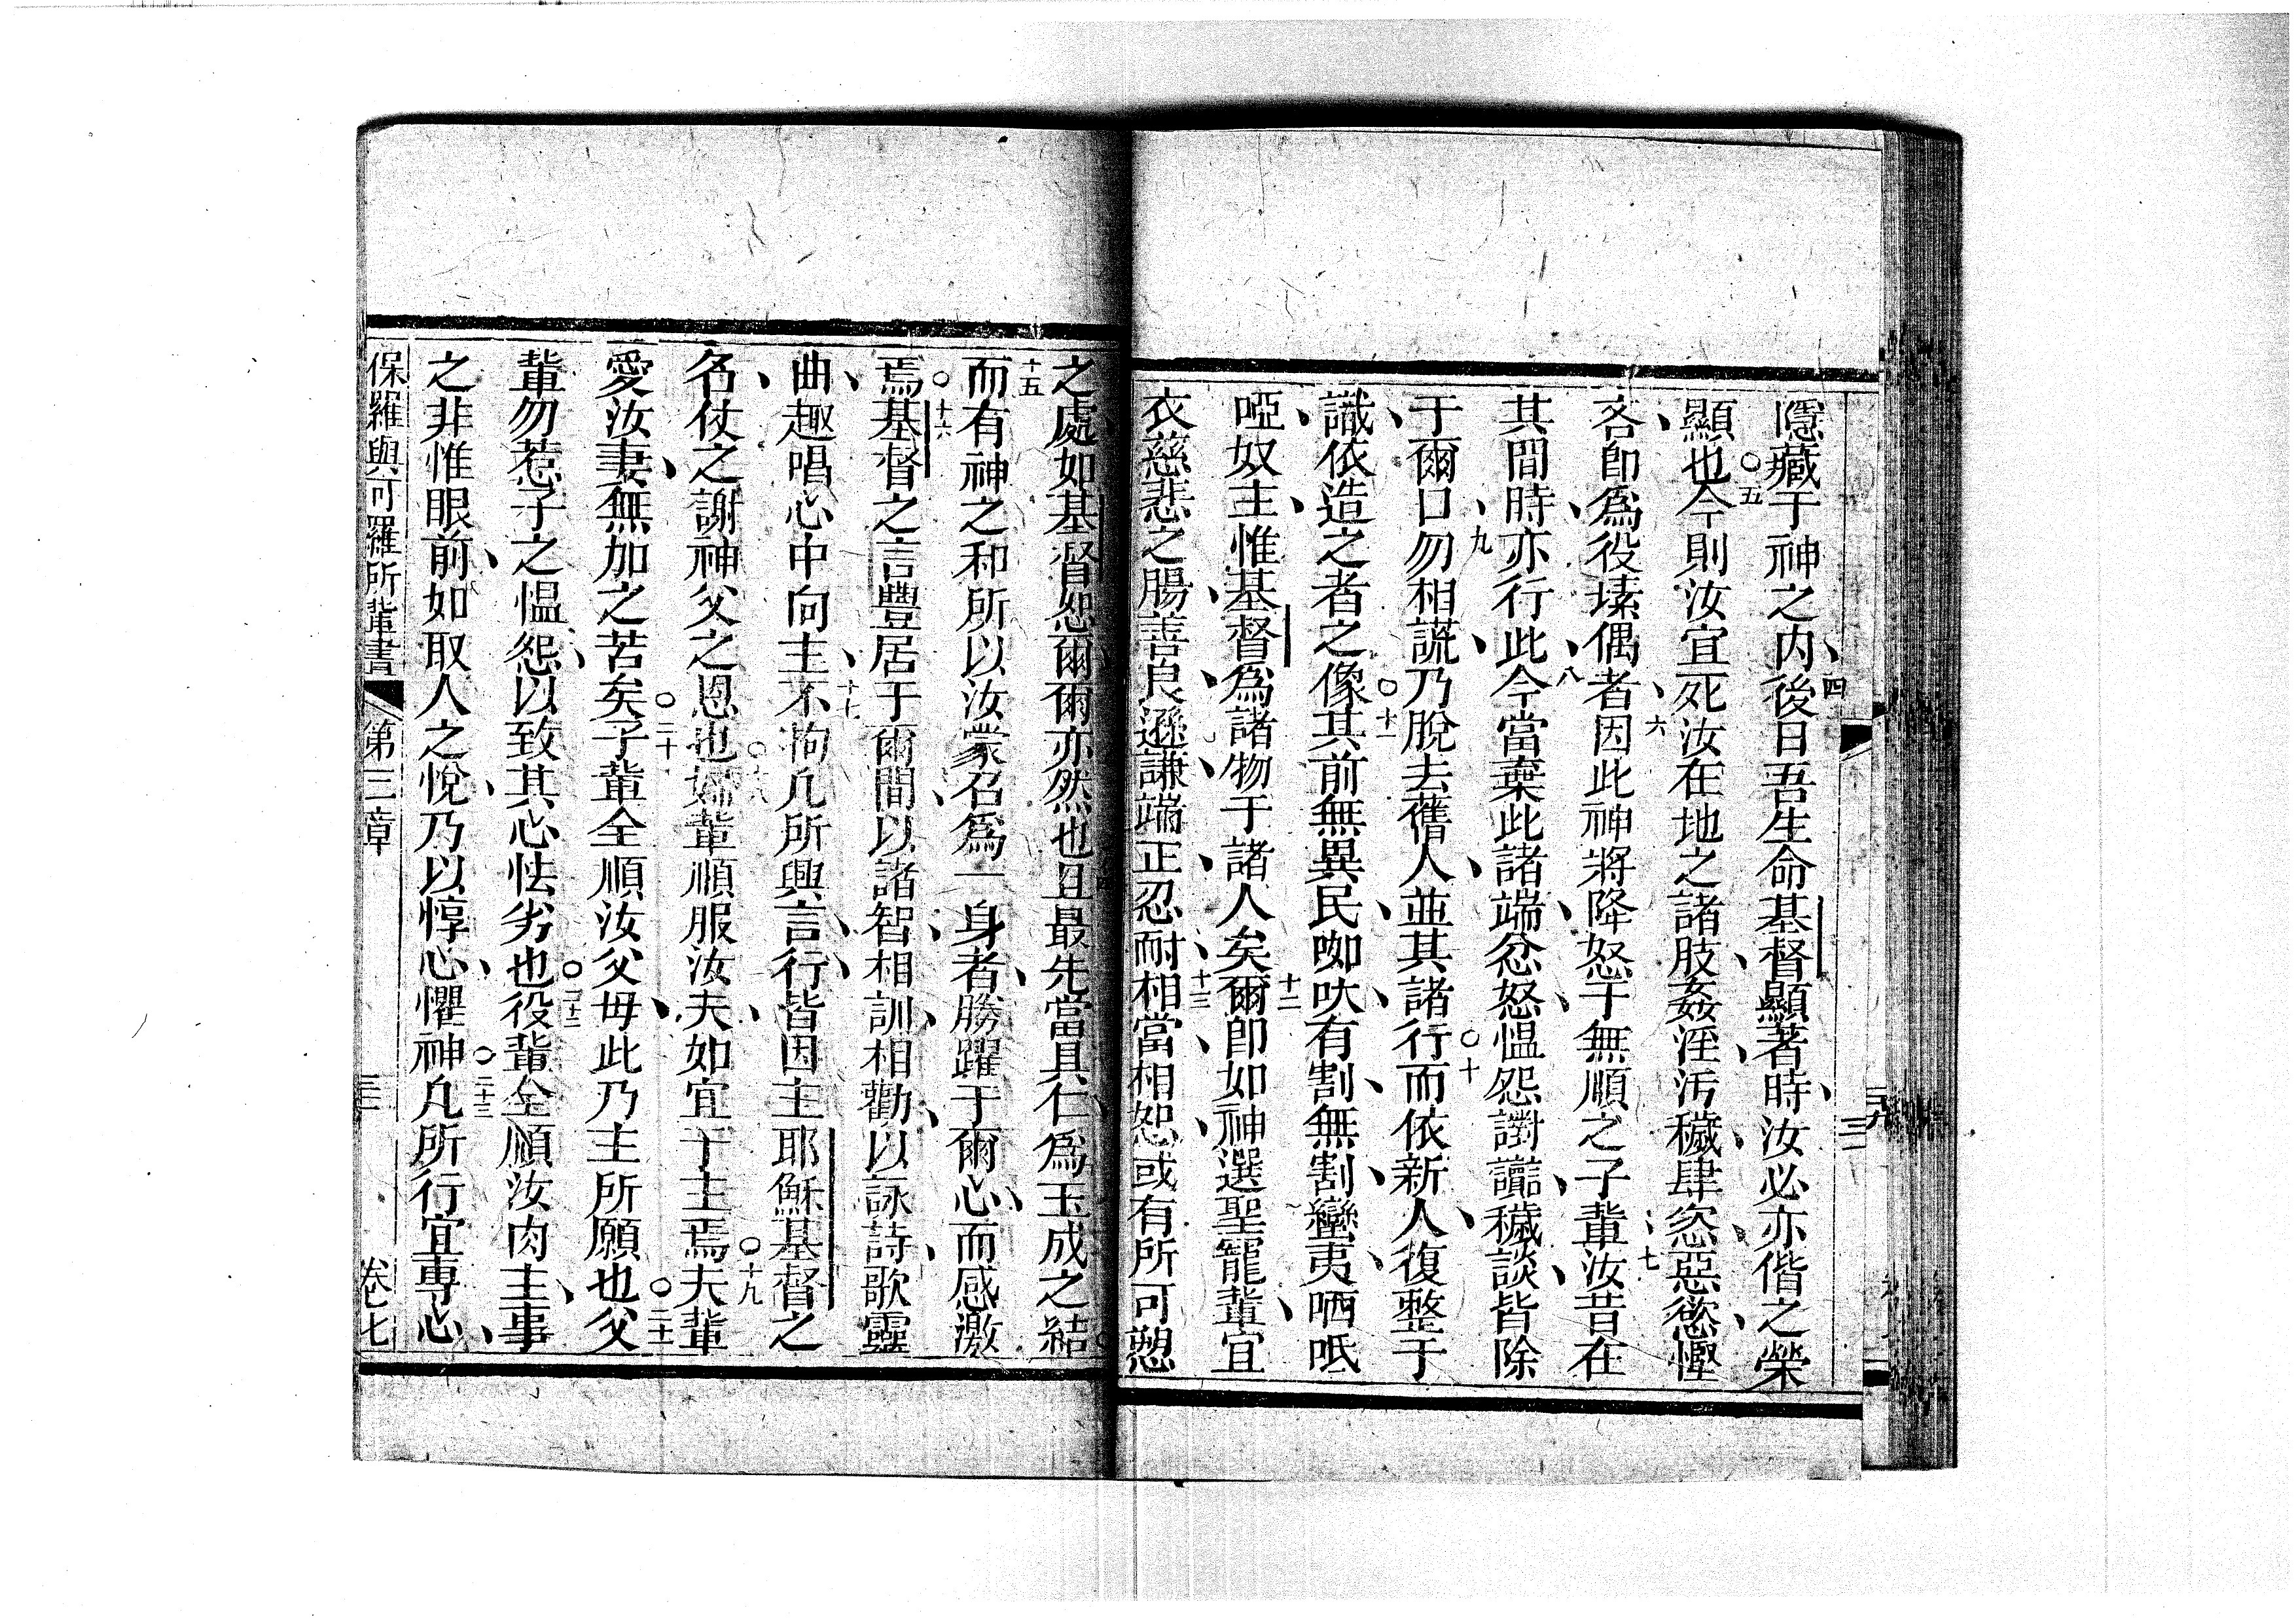 隱藏于神之內、四後日吾生命基督顯著時、汝必亦偕之榮
顯也○五今則汝宜死汝在地之諸肢、姦淫、汚穢、肆恣、惡慾、慳
吝、卽爲役塐偶者、六因此神將降怒于無順之子輩、七汝昔在
其間時、亦行此、八今當棄此諸端、忿怒、愠怨、讟讟、穢談、皆除
于爾口、九勿相謊、乃脫去舊人、並其諸行○十而依新人、復整于
識、依造之者之像○十一其前無異民、㗎吠、有割、無割、蠻夷、哂呧
啞、奴主、惟基督爲諸物于諸人矣十二爾卽如神選聖寵輩、宜
衣慈悲之腸、善良、遜謙、端正、忍耐、十三相當、相恕、或有所可愬
之處、如基督恕爾、爾亦然也且最先當具仁爲玉成之結
十五而有神之和、所以汝蒙召爲一身者、勝躍于爾心、而感激
焉○十六基督之言豐居于爾間、以諸智、相訓、相勸、以詠詩、歌靈
曲、趣唱心中向主、十七不拘凡所興、言、行、皆因主耶穌基督之
名、仗之謝神父之恩也○十八婦輩順服汝夫、如宜于主焉○十九夫輩
愛汝妻、無加之苦矣○二十子輩全順汝父母、此乃主所願也○二十一父
輩勿惹子之愠怨、以致其心怯劣也○二十二役輩全順汝肉主、事
之非惟眼前、如取人之悅、乃以惇心、懼神○二十三凡所行宜專心、
保羅與可羅所輩書 第三章 三 卷七